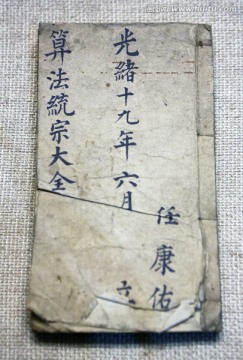 光緒十九年六月
任康佑
算法統宗大全